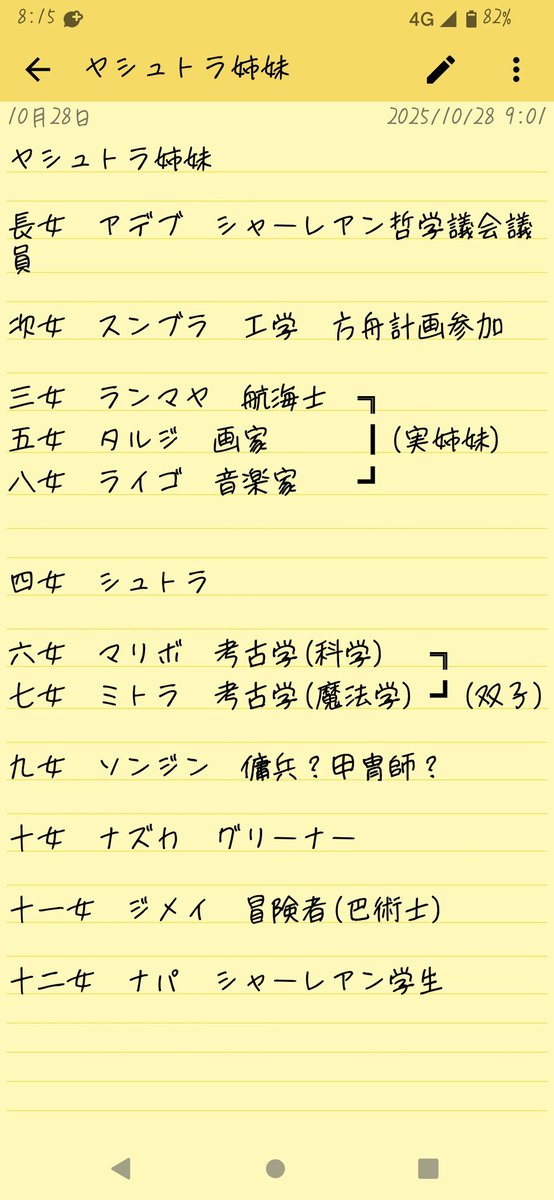 8:15
4G 82%
ヤシュトラ姉妹
10月28日
2025/10/28 9:01
ヤシュトラ姉妹
長女　アデブ　シャーレアン哲学議会議
員
次女　スンブラ　工学　方舟計画参加
三女　ランマヤ　航海士　┓
五女　タルジ　画家　┃(実姉妹)
八女　ライゴ　音楽家　┛
四女　シュトラ
六女　マリボ　考古学(科学)　┓
七女　ミトラ　考古学(魔法学)　┛(双子)
九女　ソンジン　傭兵？甲冑師？
十女　ナズカ　グリーナー
十一女　ジメイ　冒険者(巴術士)
十二女　ナパ　シャーレアン学生